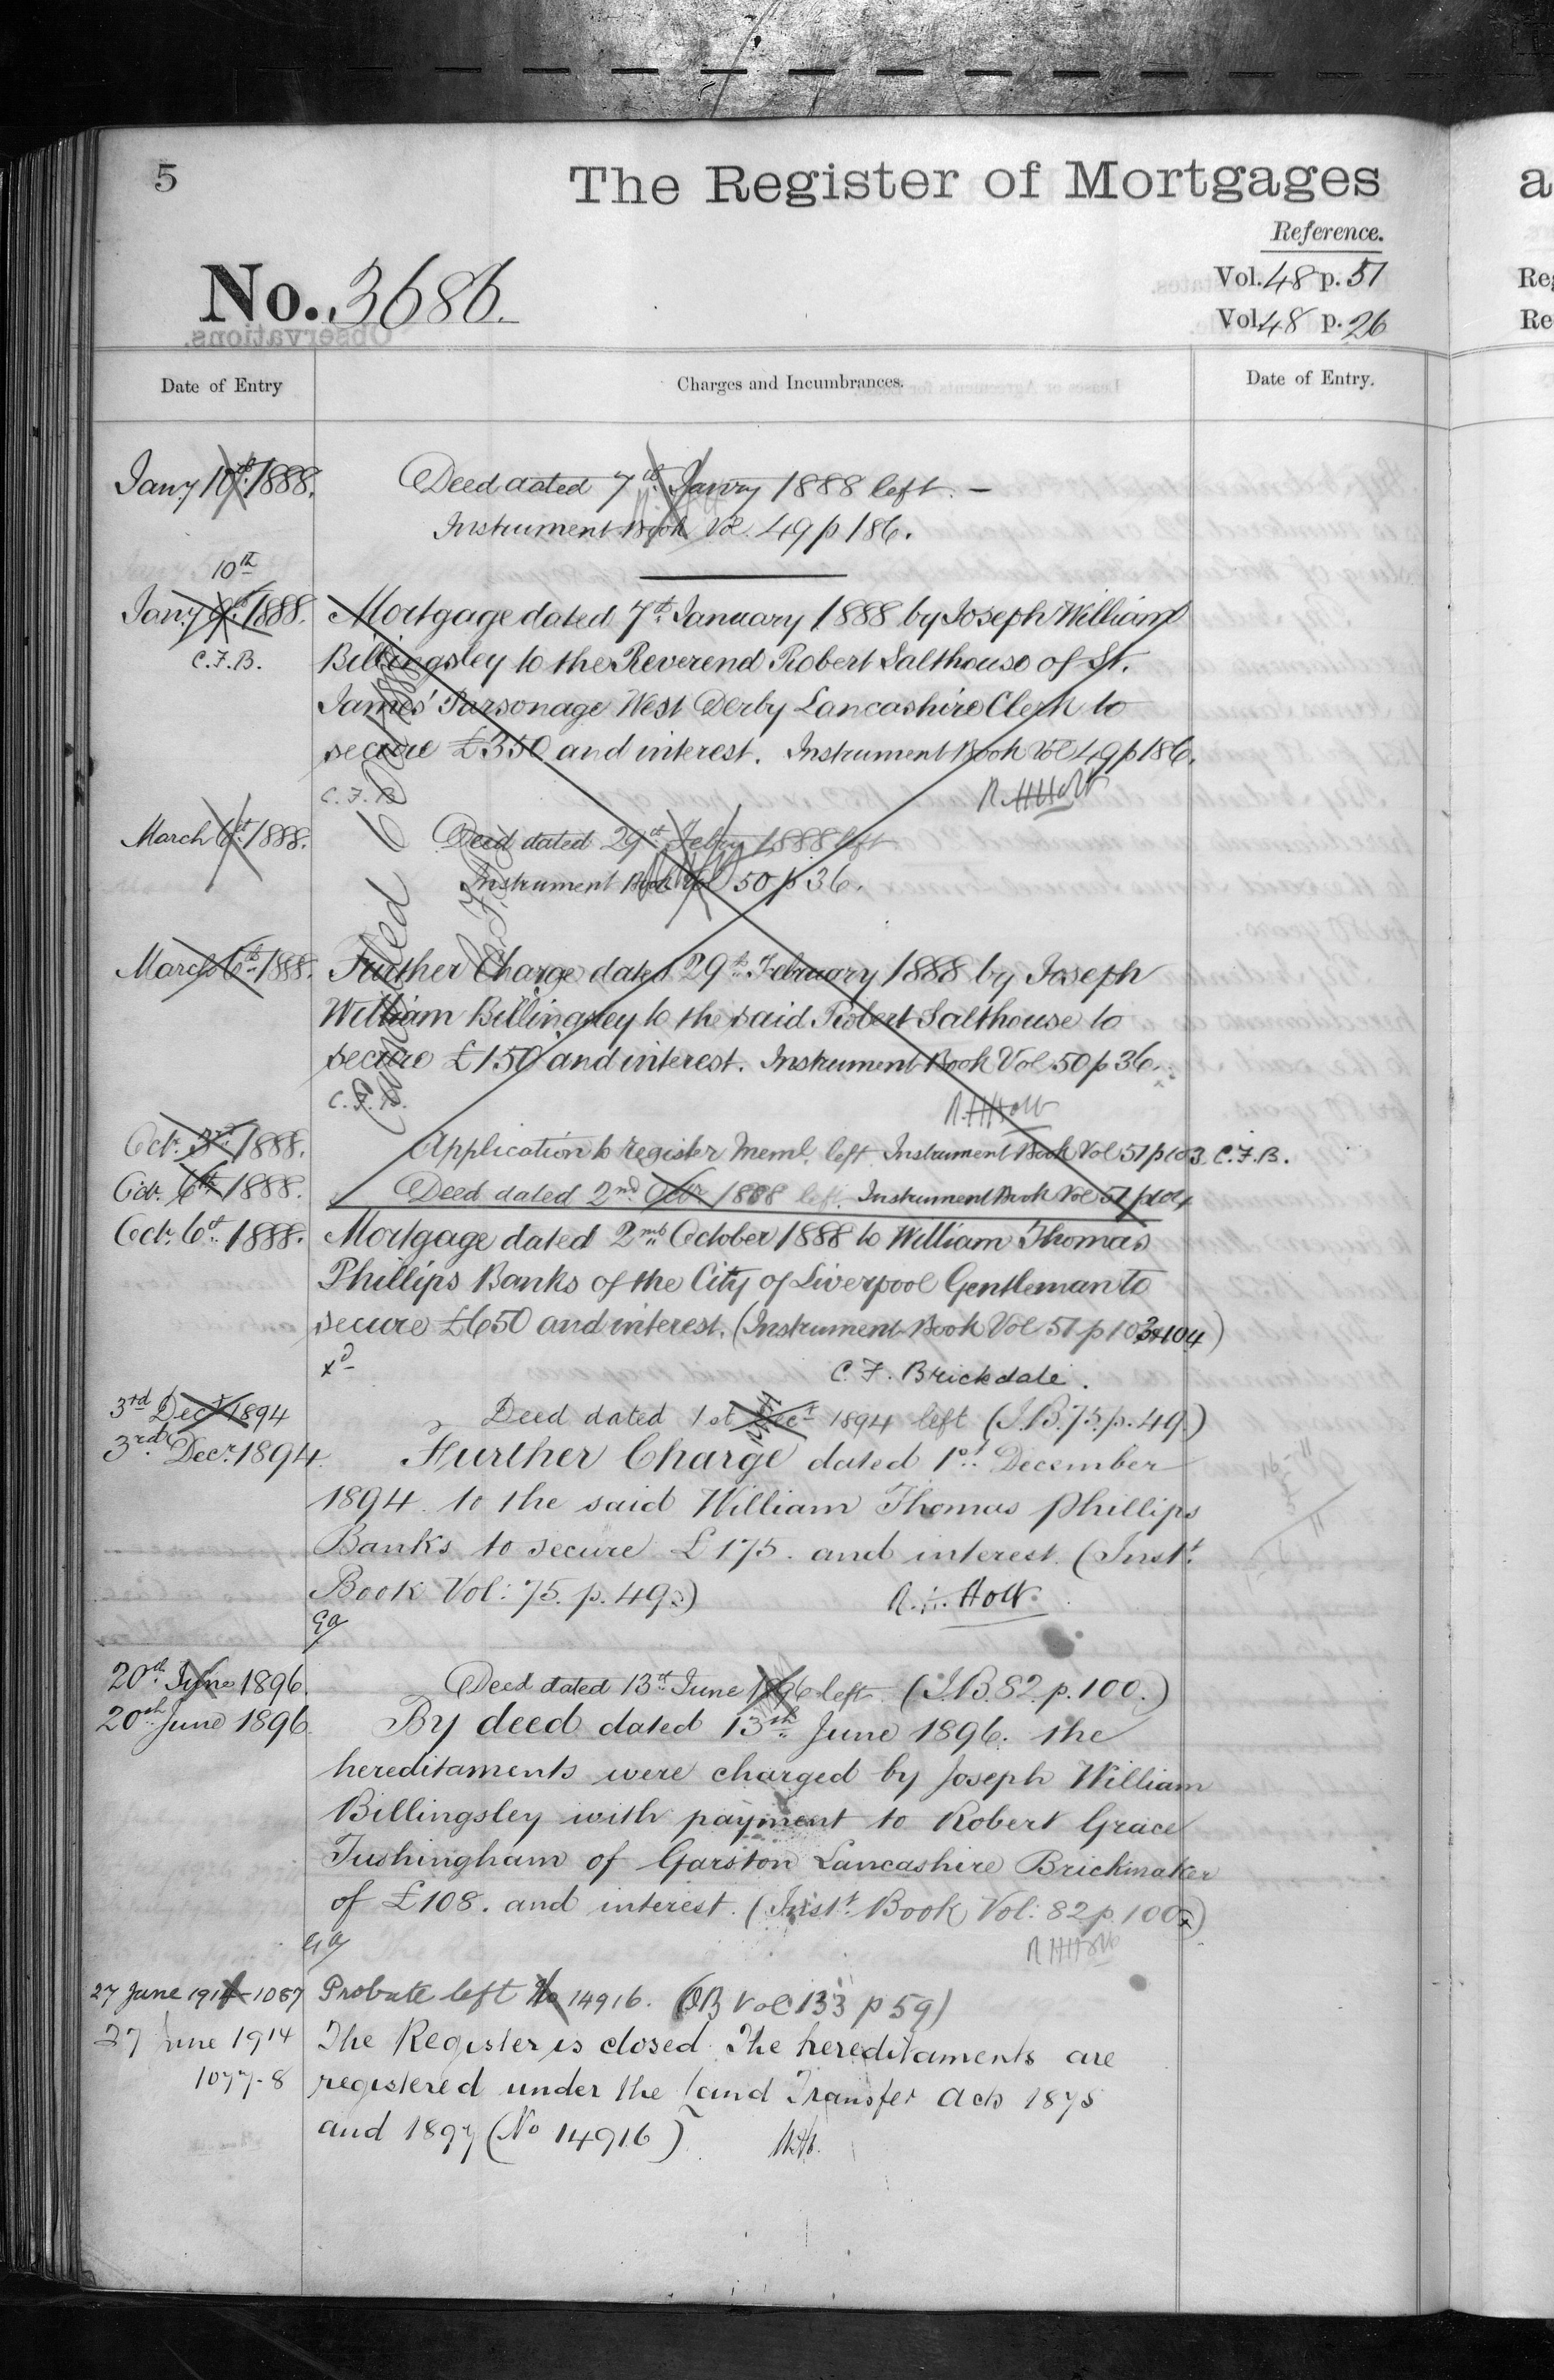 5
The Register of Mortgages
Reference.
No. 3686.
Vol. 48 p. 51
Vol. 48 p. 26
Date of Entry
Charges and Incumbrances.
Date of Entry.
Jany 10th 1888. Deed dated 7th Janry 1888 left. –
Instrument Book Vol. 49 p 186.
10th
Jany 1888. Mortgage dated 7th January 1888 by Joseph William
C.F.B. Billingsley to the Reverend Robert Salthouse of St.
James' Parsonage West Derby Lancashire Clerk to
secure £350 and interest. Instrument Book Vol 49 p 186.
C.F.B. R.H. Holt
March 6th 1888. Deed dated 29th Febry 1888 left
Instrument Book Vol 50 p 36.
March 6th 1888. Further Charge dated 29th February 1888 by Joseph
William Billingsley to the said Robert Salthouse to
secure £150 and interest. Instrument Book Vol 50 p 36.
C.F.B. R.H. Holt
Cancelled 6
Oct. 3rd 1888. Application to register Meml. left Instrument Book Vol 51 p 103 C.F.B.
Oct. 6th 1888. Deed dated 2nd Octr 1888 left. Instrument Book Vol 51 p 104
Oct. 6th 1888. Mortgage dated 2nd October 1888 to William Thomas
Phillips Banks of the City of Liverpool Gentleman to
secure £650 and interest. (Instrument Book Vol 51 p 103 & 104)
xd C.F. Brickdale.
3rd Decr 1894 Deed dated 1st Decr 1894 left (I.B. 75. p. 49.)
3rd Decr. 1894. Further Charge dated 1st December
1894 to the said William Thomas Phillips
Banks to secure £175. and interest. (Instt.
Book Vol: 75. p. 49.)
R.H. Holt
20th June 1896. Deed dated 13th June 1896 left. (I.B. 82. p. 100.)
20th June 1896. By deed dated 13th June 1896. the
hereditaments were charged by Joseph William
Billingsley with payment to Robert Grace
Tushingham of Garston Lancashire Brickmaker
of £108. and interest. (Instt. Book Vol: 82 p 100.)
R H Holt
27 June 1914 - 1087 Probate left No 14916. (IB Vol 133 p 59)
27 June 1914 The Register is closed. The hereditaments are
1077-8 registered under the Land Transfer Acts 1875
and 1897 (No 14916)
a
Reg
Re